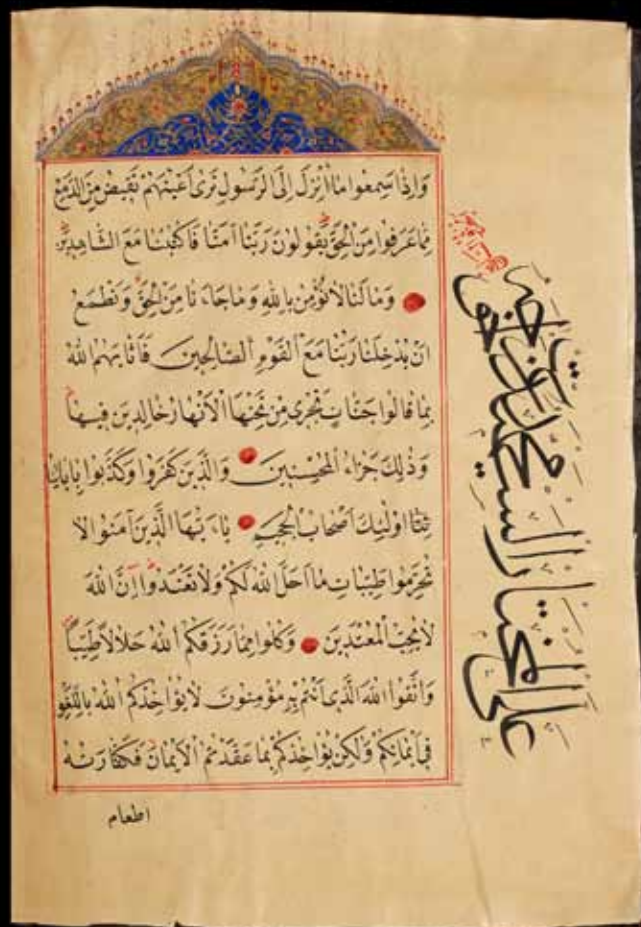 وَاِذَا سَمِعُوا مَا اُنْزِلَ اِلَى الرَّسُولِ تَرٰى اَعْيُنَهُمْ تَفِيضُ مِنَ الدَّمْعِ
مِمَّا عَرَفُوا مِنَ الْحَقِّ يَقُولُونَ رَبَّنَا اٰمَنَّا فَاكْتُبْنَا مَعَ الشَّاهِدِينَ
وَمَا لَنَا لَا نُؤْمِنُ بِاللّٰهِ وَمَا جَاۤءَنَا مِنَ الْحَقِّ وَنَطْمَعُ
اَنْ يُدْخِلَنَا رَبُّنَا مَعَ الْقَوْمِ الصَّالِحِينَ فَاَثَابَهُمُ اللّٰهُ
بِمَا قَالُوا جَنَّاتٍ تَجْرِى مِنْ تَحْتِهَا الْاَنْهَارُ خَالِدِينَ فِيهَا
وَذٰلِكَ جَزَاۤءُ الْمُحْسِنِينَ وَالَّذِينَ كَفَرُوا وَكَذَّبُوا بِاٰيَاتِنَا
اُولٰۤئِكَ اَصْحَابُ الْجَحِيمِ يَاۤ اَيُّهَا الَّذِينَ اٰمَنُوا لَا
تُحَرِّمُوا طَيِّبَاتِ مَاۤ اَحَلَّ اللّٰهُ لَكُمْ وَلَا تَعْتَدُوا اِنَّ اللّٰهَ
لَا يُحِبُّ الْمُعْتَدِينَ وَكُلُوا مِمَّا رَزَقَكُمُ اللّٰهُ حَلَالًا طَيِّبًا
وَاتَّقُوا اللّٰهَ الَّذِىۤ اَنْتُمْ بِهِ مُؤْمِنُونَ لَا يُؤَاخِذُكُمُ اللّٰهُ بِاللَّغْوِ
فِىۤ اَيْمَانِكُمْ وَلٰكِنْ يُؤَاخِذُكُمْ بِمَا عَقَّدْتُمُ الْاَيْمَانَ فَكَفَّارَتُهُ
اطعام